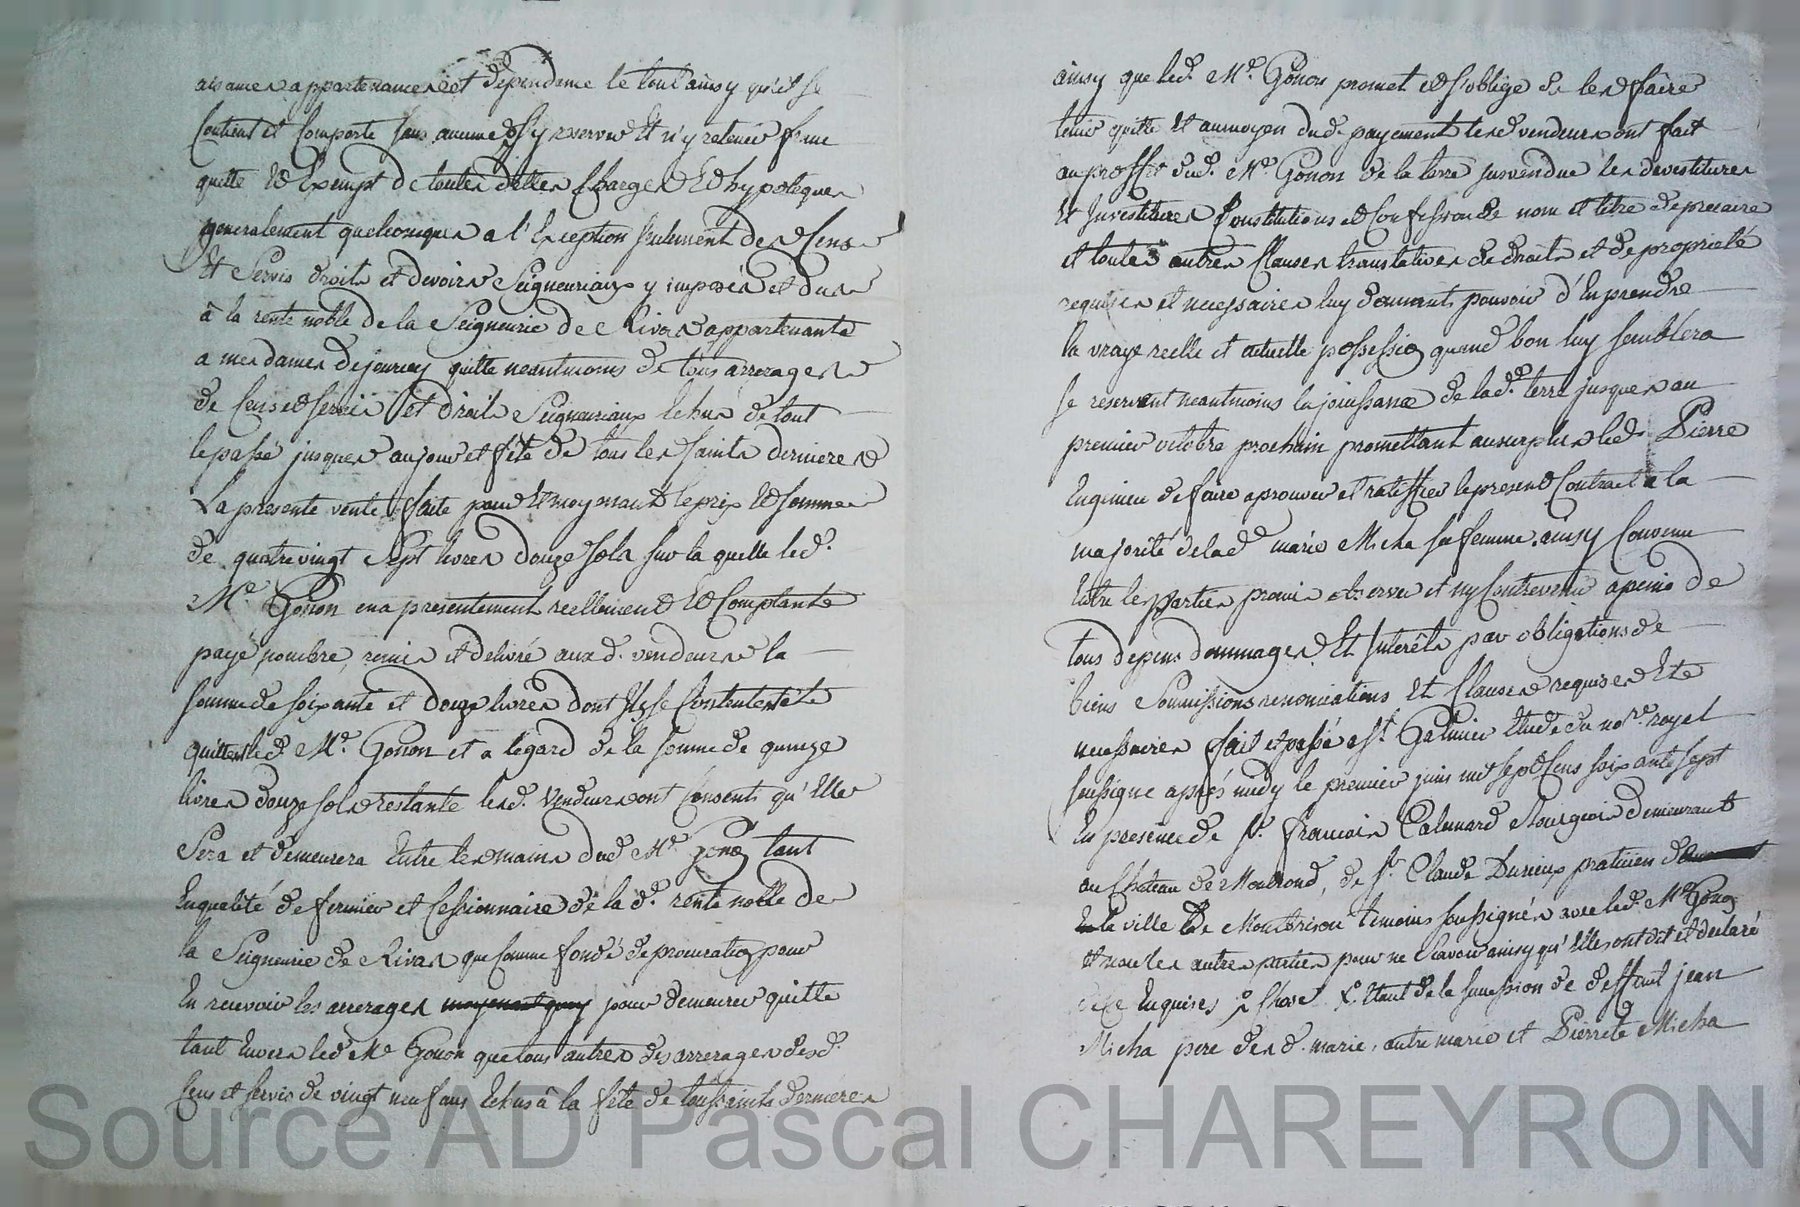 aisances appartenances et dépendance le tout ainsy qu'il se
Contient et Comporte sans aucune s'y reserver Et n'y retenir franc
quitte Et Exempt de toutes dettes Charges Et hypoteques
generalement quelconques a l'Exception seulement des Cens
Et Servis droits et devoirs Seigneuriaux y imposés et dus
à la rente noble de la Seigneurie de Rivas appartenante
a mes dames de jourcey quitte neantmoins de tous arrerages
de Cens et servis et droits Seigneuriaux Echus de tout
le passé jusques au jour et fête de tous les saints derniere
La presente vente faite pour Et moyenant le prix Et somme
de quatre vingt sept livres douze sols sur la quelle led.
Me Gonon en a presentement reellement Et Comptant
payé nombré, remis et delivré aux d. vendeurs la
somme de soixante et douze livres dont Ils se Contentent et
quittent led. Me. Gonon et a legard de la somme de quinze
livres douze sols restante les d. Vendeurs ont Consenti qu'Elle
Sera et demeurera Entre les mains dud. Me. Gonon tant
En qualité de fermier et Cessionnaire de la d. rente noble de
la Seigneurie de Rivas que Comme fondé de procuration pour
En recevoir les arrerages moyenant quoy pour demeurer quitte
tant Envers led Me Gonon que tous autres des arrerages desd.
Cens et servis de vingt neuf ans Echus à la fête de toussaints derniere
ainsy que led. Me. Gonon promet et s'oblige de les faire
tenir quitte Et au moyen dud. payement les d. vendeurs ont fait
au proffit dud. Me Gonon de la terre sus vendue les devestitures
Et Investitures Constitutions et Confession de nom et titre de precaire
et toutes autres Clauses translatives de droits et de proprieté
requises et necessaires luy donnants pouvoir d'En prendre
la vraye reelle et actuelle possession quand bon luy semblera
se reservent neantmoins la jouissance de lad. terre jusques au
premier octobre prochain promettant au surplus led. Pierre
Enginieu de faire aprouver et ratiffier le present Contract a la
majorité de la d. marie Micha sa femme. ainsy Convenu
Entre les parties promis observer et n'y Contrevenir a peine de
tous depens dommages Et Interêts par obligations de
biens Soumissions renonciations Et Clauses requises Et
necessaires fait et passé a St. Galmier Etude du nore. royal
soussigné aprés midy le premier juin mil sept Cens soixante sept
En presence de Sr. francois Calemard Bourgeois demeurant
au Chateau de Montrond, de Sr. Claude Durieux praticien
En la ville De Montbrison temoins soussignés avec led. Me Gonon
et non les autres parties pour ne Scavoir ainsy qu'Elles ont dit et declaré
de ce Enquises, Chose Etant de la succession de deffunt jean
Micha pere des d. marie, autre marie et Pierrete Micha
Source AD Pascal CHAREYRON